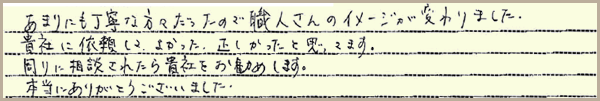 あまりにも丁寧な方々だったので職人さんのイメージが変わりました.
貴社に依頼して、よかった、正しかったと思ってます。
周りに相談されたら貴社をお勧めします。
本当にありがとうございました.